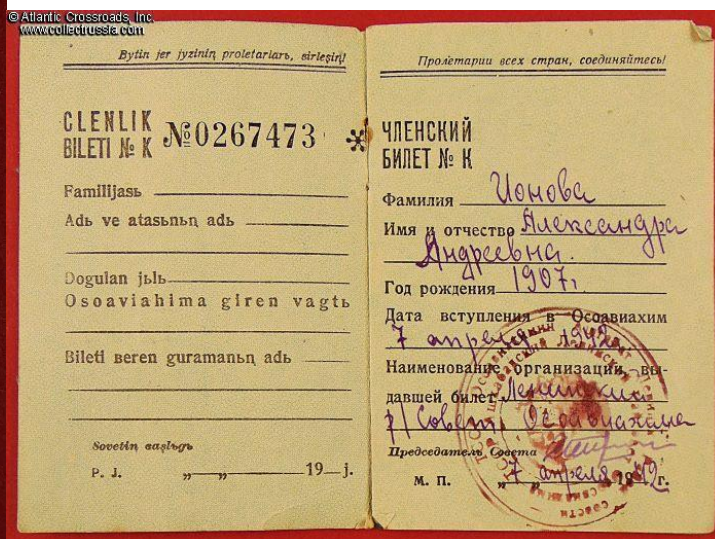 © Atlantic Crossroads, Inc.
www.collectrussia.com
Bytin jer jyziniꞑ proletarlarь, birleşiꞑ!
CLENLIK
BILETI № K №0267473
Familijasь
Adь ve atasьnьꞑ adь
Dogulan jьlь
Osoaviahima giren vagtь
Bileti beren guramanьꞑ adь
Sovetiꞑ başlьgь
P. J. „ “ 19 j.
Пролетарии всех стран, соединяйтесь!
ЧЛЕНСКИЙ
БИЛЕТ № К
Фамилия Ионова
Имя и отчество Александра
Андреевна.
Год рождения 1907г
Дата вступления в Осоавиахим
7 апреля 1942
Наименование организации, вы-
давшей билет Ленинский
р/Совет Осоавиахима
Председатель Совета
М. П. „7 апреля 1942г.